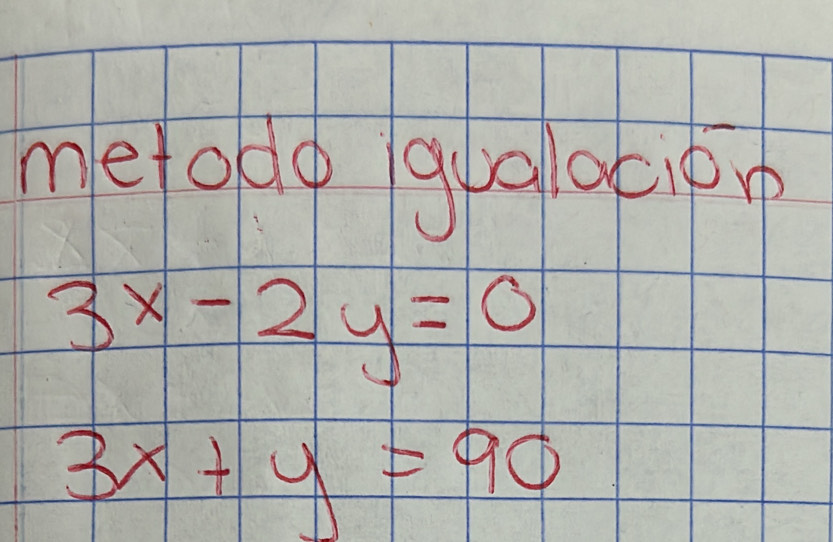 metodo igualación
3x - 2y = 0
3x + y = 90